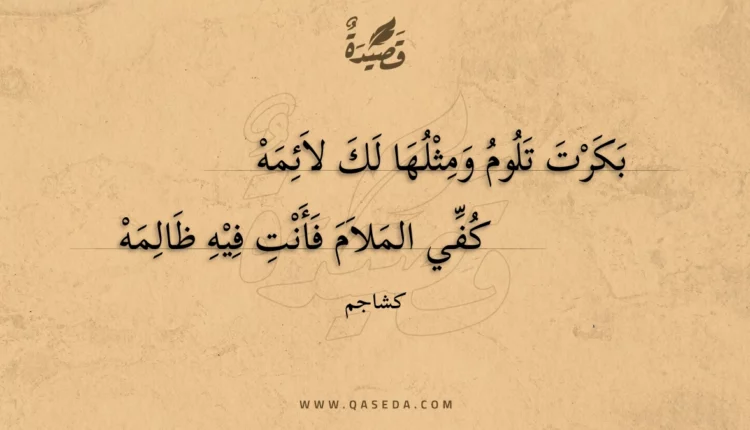 قَصِيْدَةٌ
بَكَرْتَ تَلُومُ وَمِثْلُهَا لَكَ لاَئِمَهْ
كُفِّي المَلاَمَ فَأَنْتِ فِيْهِ ظَالِمَهْ
كشاجم
WWW.QASEDA.COM